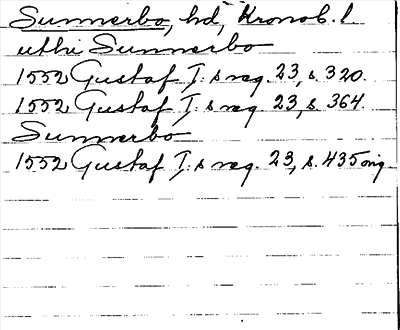 Sunnerbo, hd, Kronob. l
uthi Sunnerbo
1552 Gustaf I:s reg. 23, s. 320.
1552 Gustaf I:s reg. 23, s. 364.
Sunnerbo
1552 Gustaf I:s reg. 23, s. 435 orig.